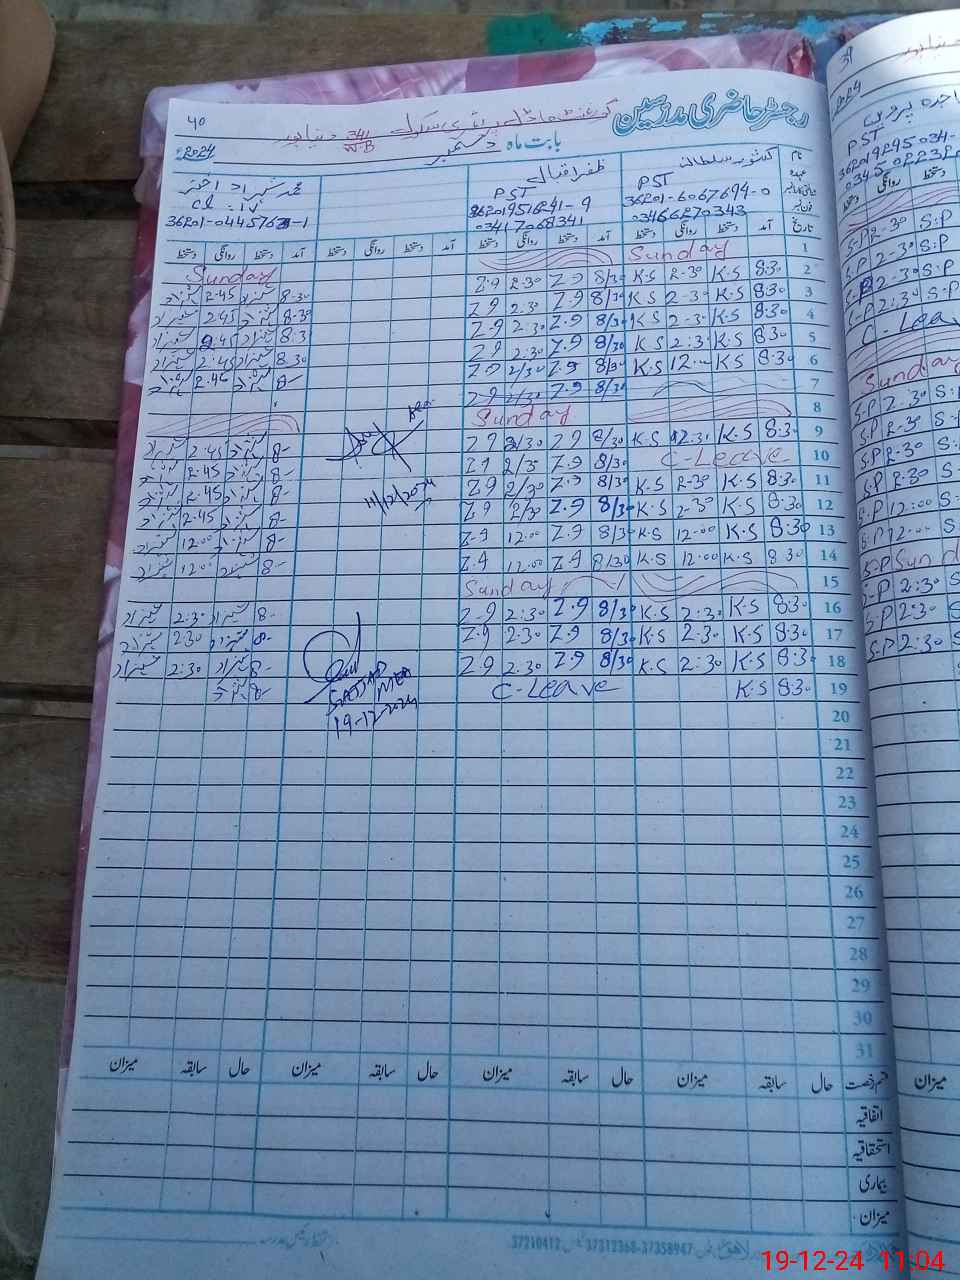 رجسٹر حاضری مدرسین
گورنمنٹ ماڈل پرائمری سکول 341 W-B دنیاپور
۴۰
بابت ماہ دسمبر 2024ء
نام کشور سلطانہ ظفر اقبال محمد شہزاد اختر
عہدہ PST PST
36201-6067694-0 362019516241-9 36201-0445767-1
03466270343 03417068341
تاریخ آمد دستخط روانگی دستخط آمد دستخط روانگی دستخط آمد دستخط روانگی دستخط آمد دستخط روانگی دستخط
1 Sunday Sunday
2 8:30 K.S 2-30 K.S 8/30 Z.9 2:30 Z.9 8-30 شہزاد 2.45 شہزاد
3 8:30 K.S 2-30 K.S 8/30 Z.9 2:30 Z.9 8-30 شہزاد 2.45 شہزاد
4 8:30 K.S 2-30 K.S 8/30 Z.9 2:30 Z.9 8:3 شہزاد 2.45 شہزاد
5 8:30 K.S 2:30 K.S 8/30 Z.9 2:30 Z.9 8.30 شہزاد 2.45 شہزاد
6 8:30 K.S 12.00 K.S 8/30 Z.9 2/30 Z.9 8- شہزاد 2.45 شہزاد
7 8/30 Z.9 2/30 Z.9
8 Sunday
9 8:30 K.S 2.30 K.S 8/30 Z.9 2/30 Z.9 8- شہزاد 2.45 شہزاد
10 C-Leave 8/30 Z.9 2/30 Z.9 8- شہزاد 2.45 شہزاد
11 8:30 K.S 2-30 K.S 8/30 Z.9 2/30 Z.9 8- شہزاد 2.45 شہزاد
11/12/2024
12 8:30 K.S 2-30 K.S 8/30 Z.9 2/30 Z.9 8- شہزاد 2.45 شہزاد
13 8:30 K.S 12-00 K.S 8/30 Z.9 12.00 Z.9 8- شہزاد 12.00 شہزاد
14 8:30 K.S 12:00 K.S 8/30 Z.9 12.00 Z.9 8- شہزاد 12.00 شہزاد
15 Sunday
16 8:30 K.S 2:30 K.S 8/30 Z.9 2:30 Z.9 8- شہزاد 2.30 شہزاد
17 8:30 K.S 2:30 K.S 8/30 Z.9 2:30 Z.9 8- شہزاد 2:30 شہزاد
18 8:30 K.S 2:30 K.S 8/30 Z.9 2:30 Z.9 8- شہزاد 2:30 شہزاد
19 8:30 K.S C-Leave 8- شہزاد
SAJJAD
MEA
19-12-2024
20
21
22
23
24
25
26
27
28
29
30
31
قسم رخصت حال سابقہ میزان حال سابقہ میزان حال سابقہ میزان حال سابقہ میزان
اتفاقیہ
استحقاقیہ
بیماری
میزان
لاہور 37358947-37312368 37210412
2024
PST
362019295034-
روانگی دستخط
S.P 2-30 S:P
S.P 2-30 S:P
S.P 2-30 S:P
S.P 2:30 S:P
C-Leave
Sunday
S.P 2:30 S:
S.P 2:30 S:
S.P 2:30 S:
S.P 2:30 S:
S.P 12:00 S:
S.P 12:00 S:
Sunday
S.P 2:30 S:
S.P 2:30 S:
S.P 2:30 S:
میزان
19-12-24 11:04